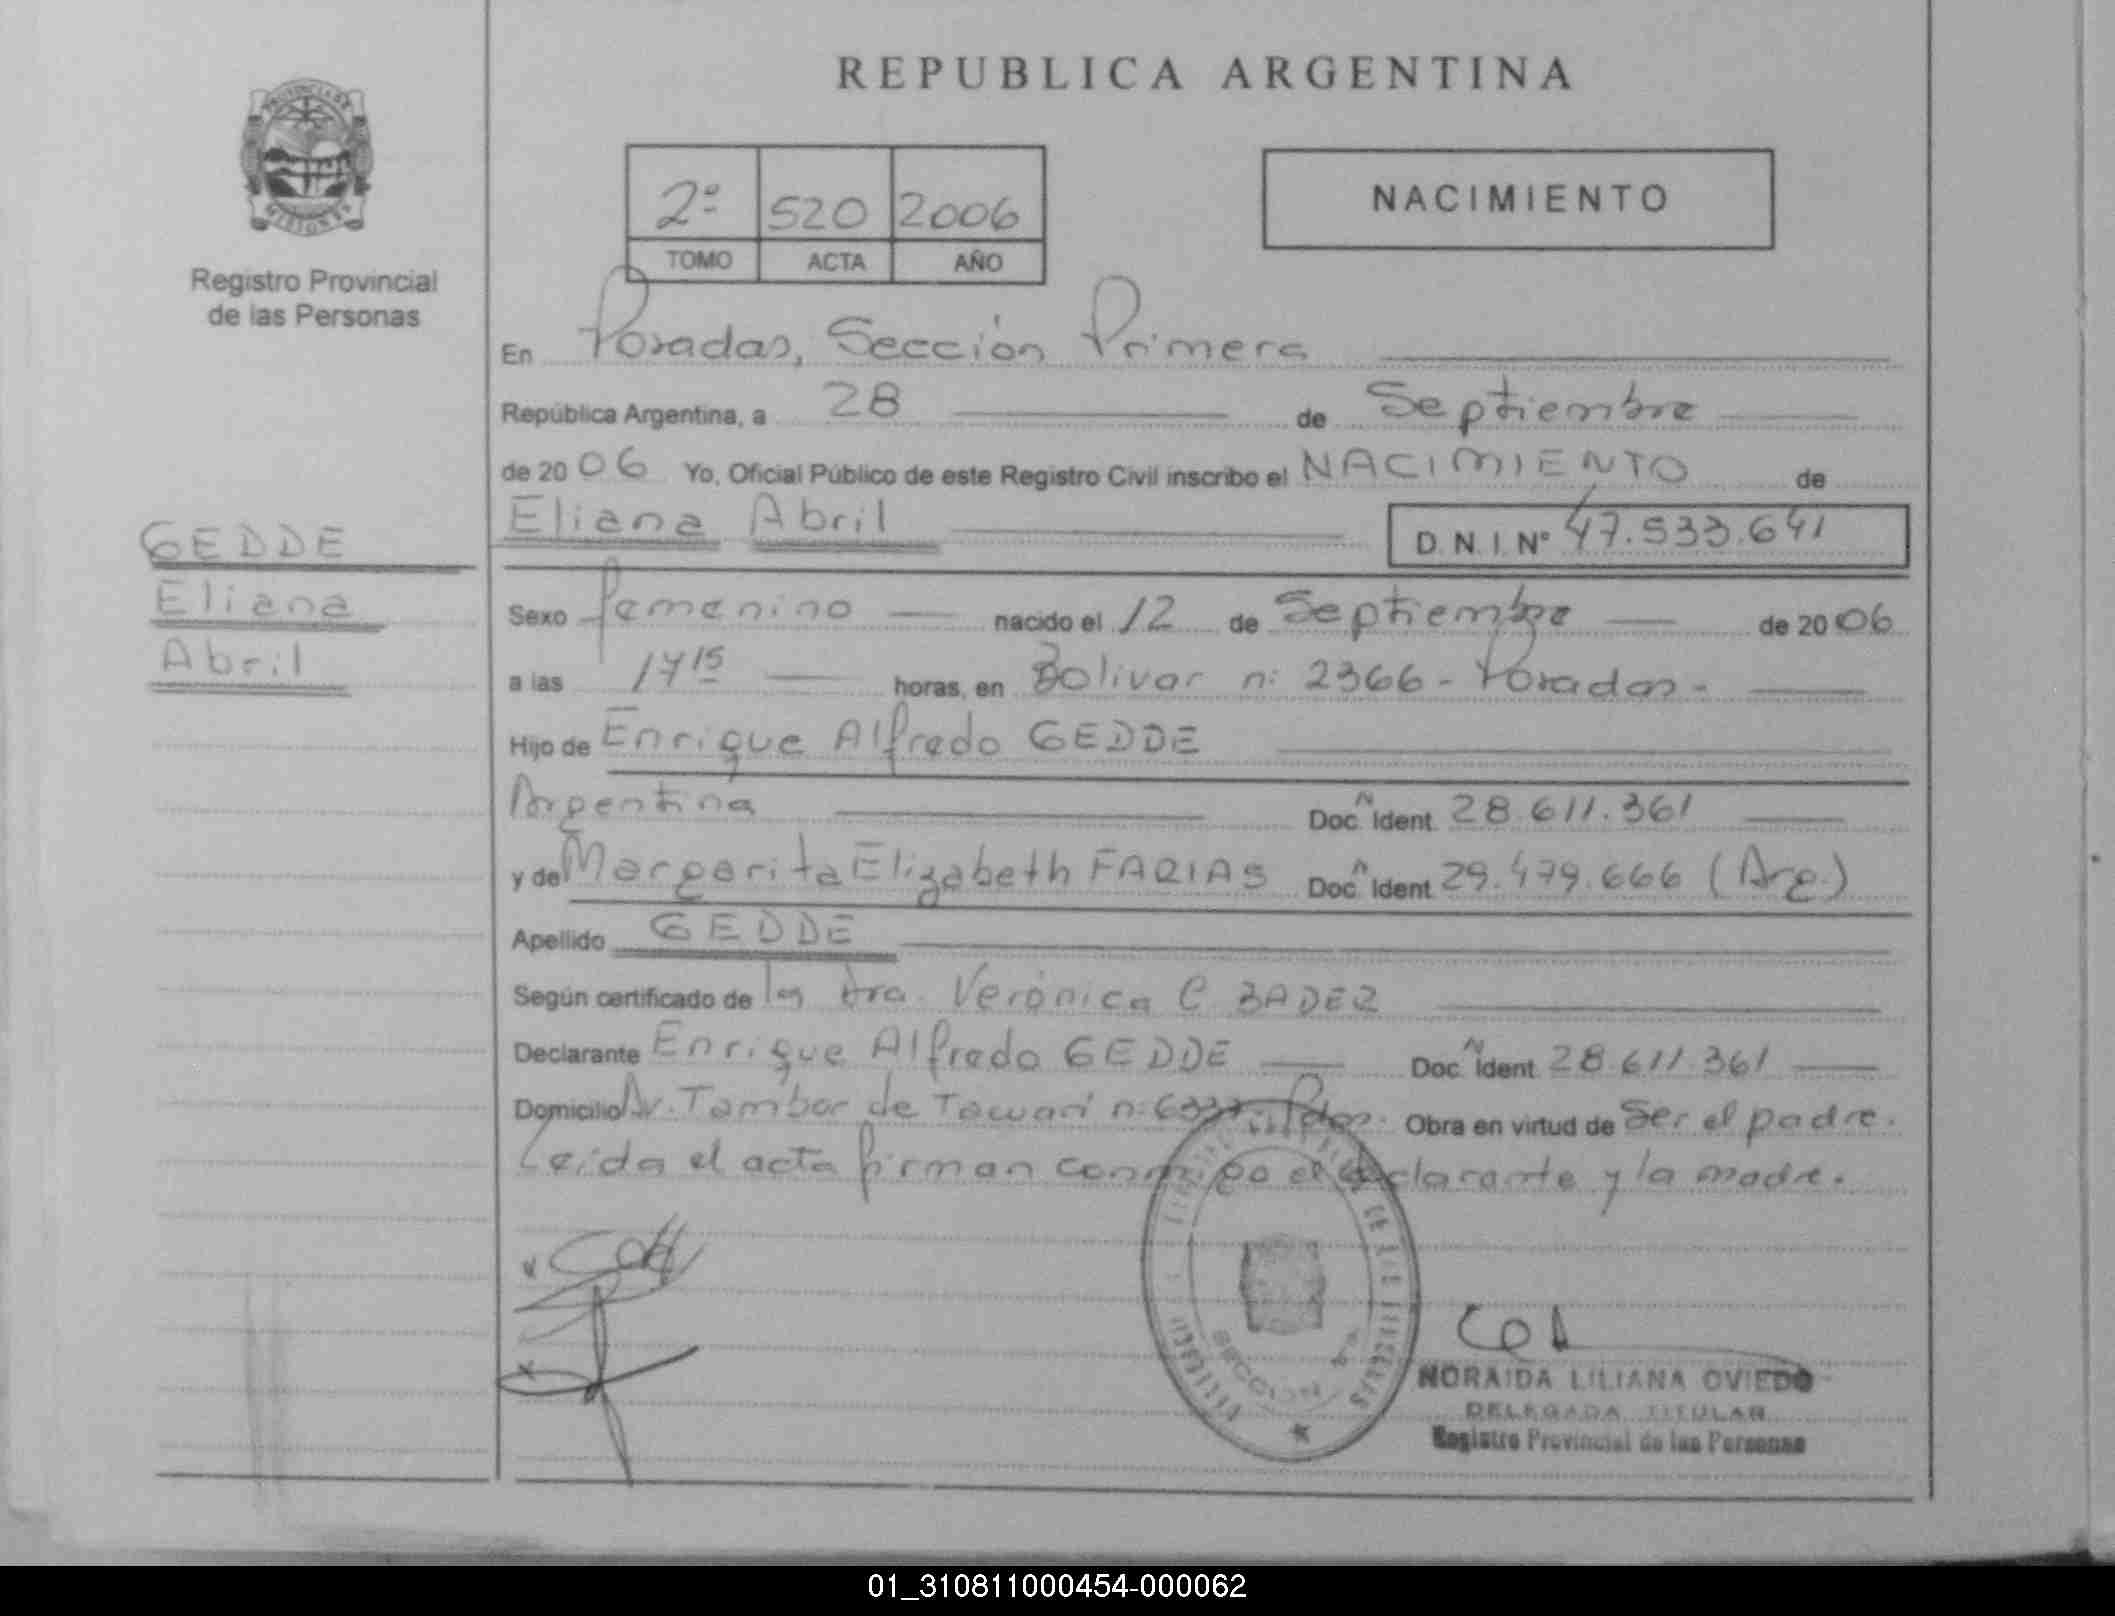 REPUBLICA ARGENTINA
PROVINCIA DE
MISIONES
Registro Provincial
de las Personas
2º 520 2006
TOMO ACTA AÑO
NACIMIENTO
En Posadas, Sección Primera
República Argentina, a 28 de Septiembre
de 20 06 Yo, Oficial Público de este Registro Civil inscribo el NACIMIENTO de
Eliana Abril D.N.I. Nº 47.533.641
GEDDE
Eliana
Abril
Sexo femenino nacido el 12 de Septiembre de 20 06
a las 17 15 horas, en Bolivar n: 2366 - Posadas -
Hijo de Enrique Alfredo GEDDE
Argentina Doc. N Ident. 28.611.361
y de Margarita Elizabeth FARIAS Doc. N Ident. 29.479.666 (Arg.)
Apellido GEDDE
Según certificado de la Dra. Verónica C BADER
Declarante Enrique Alfredo GEDDE Doc. N Ident. 28.611.361
Domicilio Av. Tambor de Tacuarí n: Pdas. Obra en virtud de Ser el padre.
Leida el acta firman conmigo el declarante y la madre.
SECCION
NORAIDA LILIANA OVIEDO
DELEGADA TITULAR
Registro Provincial de las Personas
01_310811000454-000062